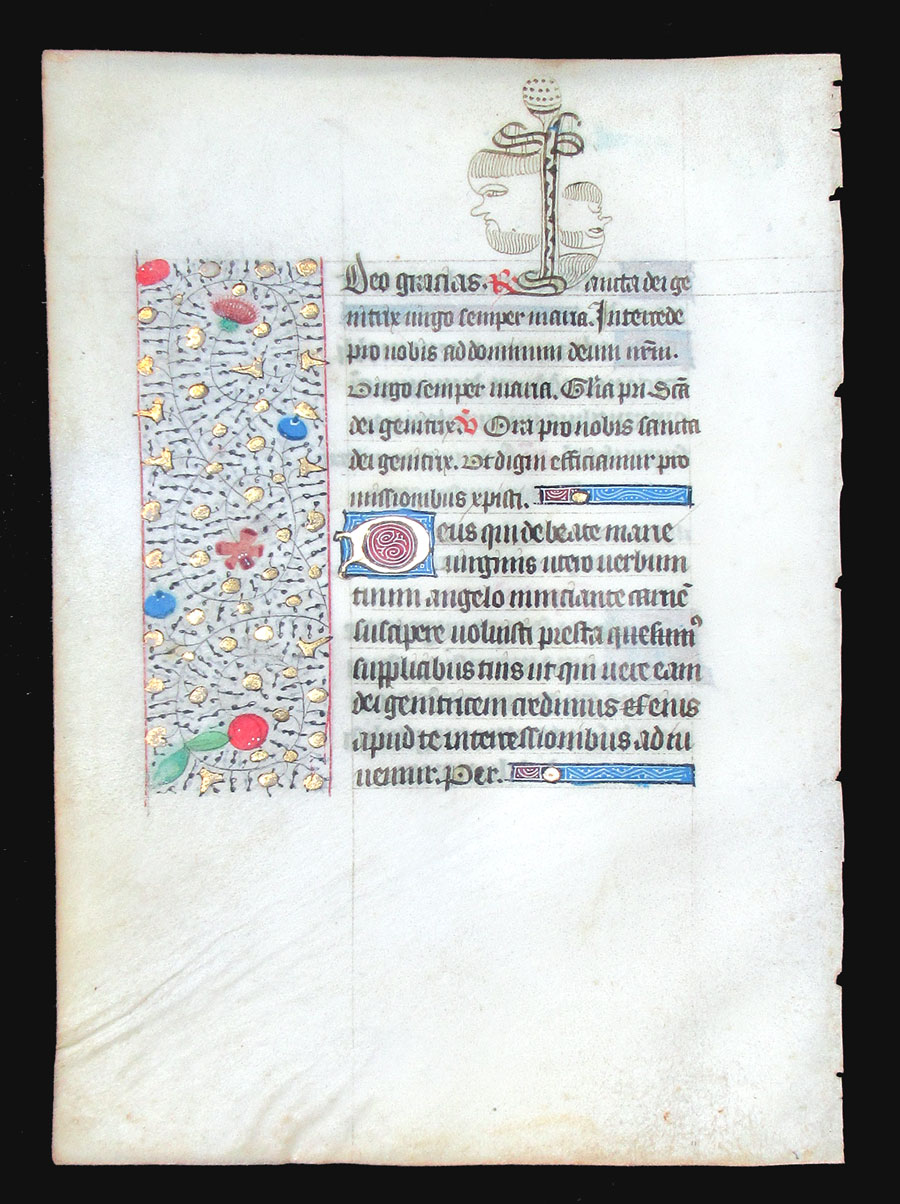 Deo gracias. R Sancta dei ge
nitrix uirgo semper maria. Intercede
pro nobis ad dominum deum nr̄m.
Virgo semper maria. Gl̄ia pr̄i Sc̄a
dei genitrix. V̄ Ora pro nobis sancta
dei genitrix. Vt digni efficiamur pro
missionibus xp̄isti.
Deus qui de beate marie
uirginis utero uerbum
tuum angelo nunciante carnē
suscipere uoluisti presta quesumꝰ
supplicibus tuis ut qui uere eam
dei genitricem credimus et eius
apud te intercessionibus adiu
uemur. Per.